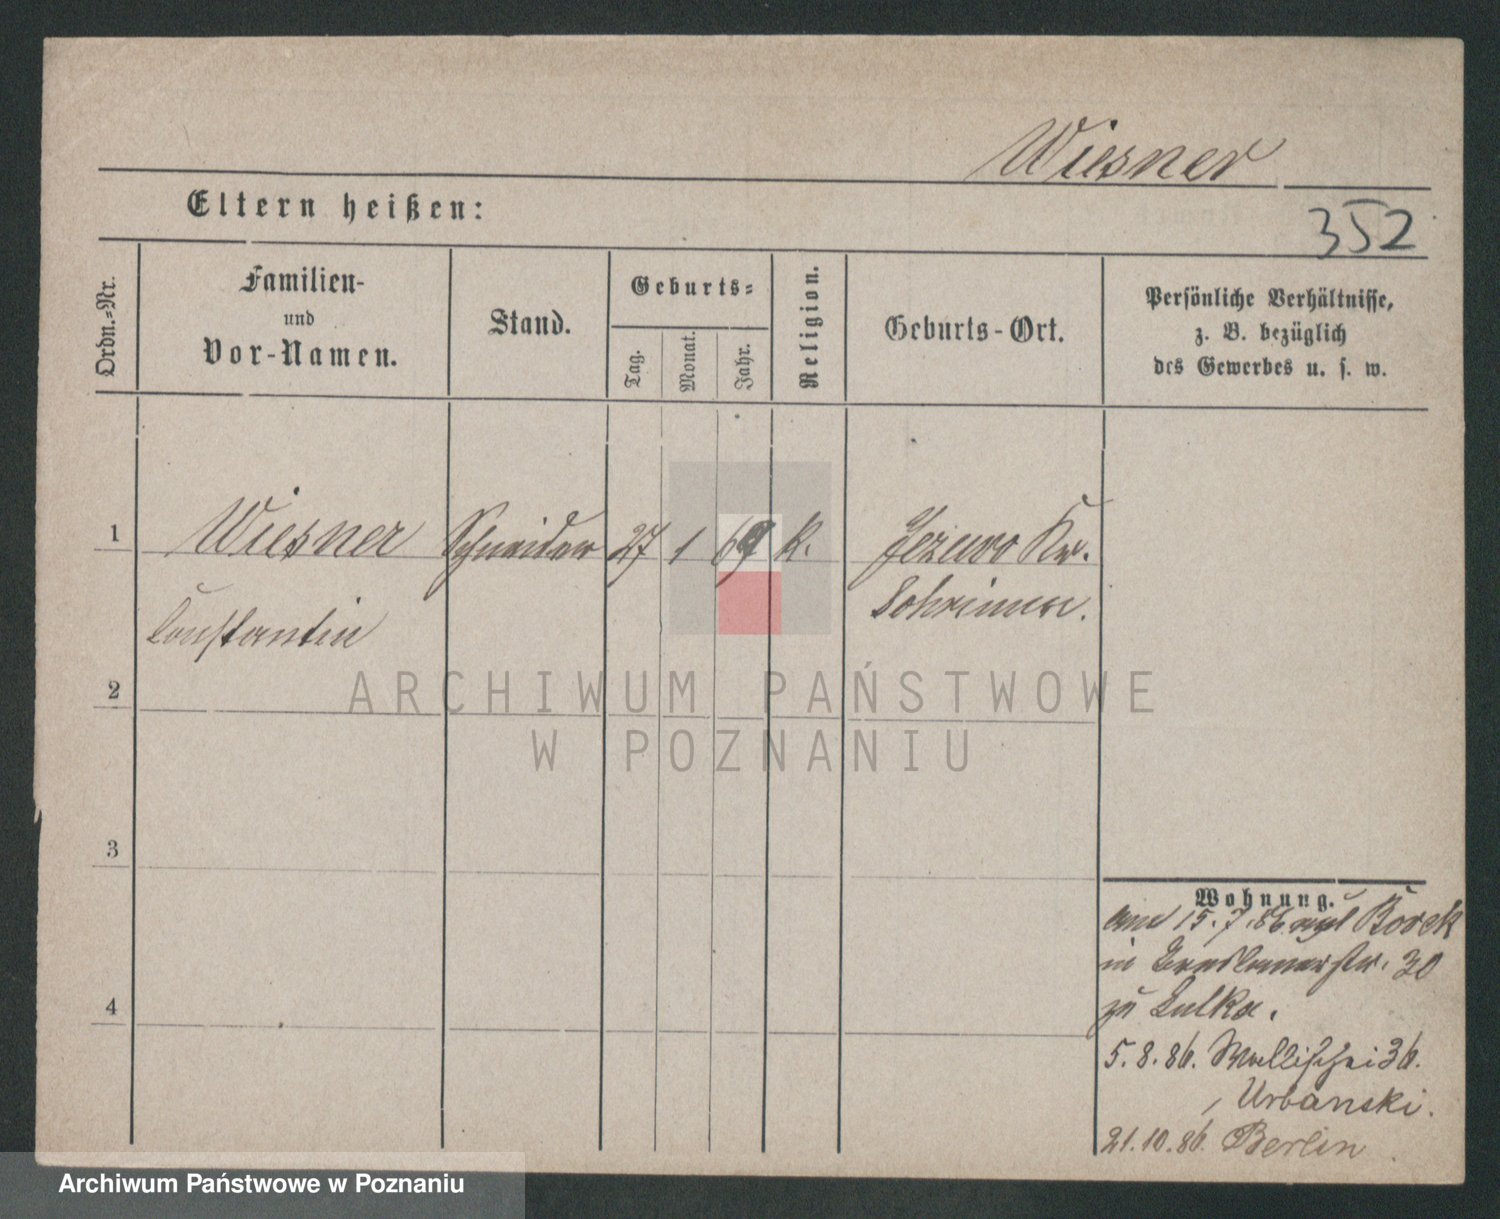 Wiesner
Eltern heißen:
352
Ordn.-Nr.
Familien-
und
Vor-Namen.
Stand.
Geburts-
Tag.
Monat.
Jahr.
Religion.
Geburts-Ort.
Persönliche Verhältnisse,
z. B. bezüglich
des Gewerbes u. s. w.
1
Wiesner Schneider 27 1 69 k. Jezewo Kr.
Constantin Schrimm.
2
ARCHIWUM PAŃSTWOWE
W POZNANIU
3
4
Wohnung.
15.7.86 Borek
in Breslauerstr. 30
zu Lulka.
5.8.86. Wallischei 36.
Urbanski.
21.10.86. Berlin
Archiwum Państwowe w Poznaniu